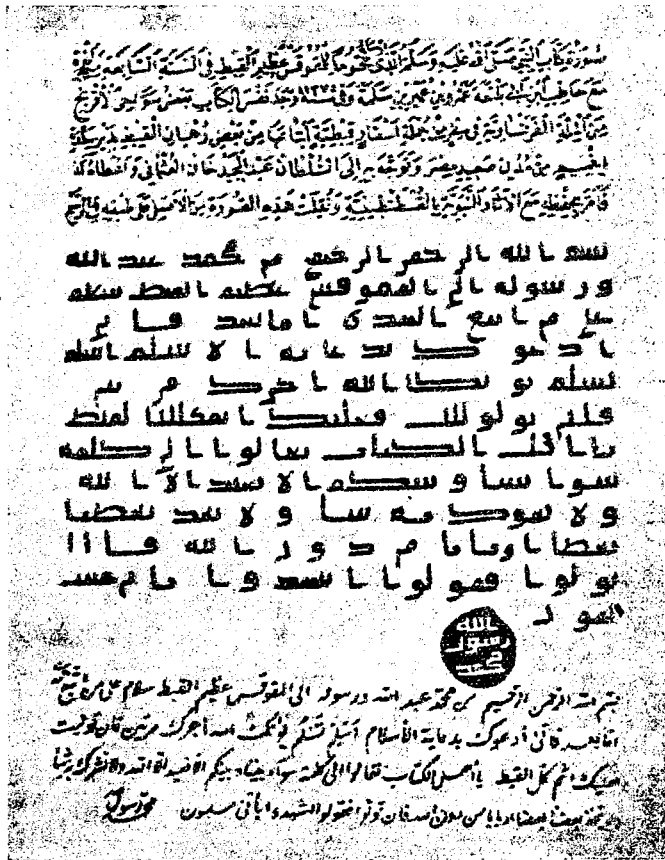 صورة كتاب النبي صلى الله عليه وسلم الذي للمقوقس عظيم القبط في السنة السابعة للهجرة
مع حاطب ابن ابي بلتعة عمرو بن عمير بن سلمة وفي سنة وجد نفس الكتاب بعض الافرنج
من الفرنساوية في ضمن جملة اسفار قبطية ابتاعها من بعض رهبان القبط بدير بلدة
اخميم من مدن صعيد مصر وتوجه به إلى السلطان عبد المجيد خان العثماني واعطاه له
فأمر بحفظه مع الآثار النبوية بالقسطنطينية ونقلت هذه الصورة من الاصل
بسم الله الرحمن الرحيم من محمد عبد الله
ورسوله الى المقوقس عظيم القبط سلام
على من اتبع الهدى اما بعد فانى
ادعوك بدعاية الاسلام اسلم
تسلم يوتك الله اجرك مر
تين فان توليت فعليك اثم كل القبط
يا اهل الكتاب تعالوا الى كلمة
سوا بيننا وبينكم الا نعبد الا الله
ولا نشرك به شيا ولا يتخذ بعضنا
بعضا اربابا من دون الله فان
تولوا فقولوا اشهدوا بانا مسلـ
ـمون
الله
رسول
محمد
بسم الله الرحمن الرحيم من محمد عبد الله ورسوله الى المقوقس عظيم القبط سلام على من اتبع الهدى
اما بعد فانى أدعوك بدعاية الاسلام أسلم تسلم يؤتك الله أجرك مرتين فان توليت
فعليك اثم كل القبط يا أهل الكتاب تعالوا الى كلمة سواء بيننا وبينكم الا نعبد الا الله ولا نشرك به شيأ
ولا يتخذ بعضنا بعضا اربابا من دون الله فان تولوا فقولوا اشهدوا بأنا مسلمون محمد رسول الله